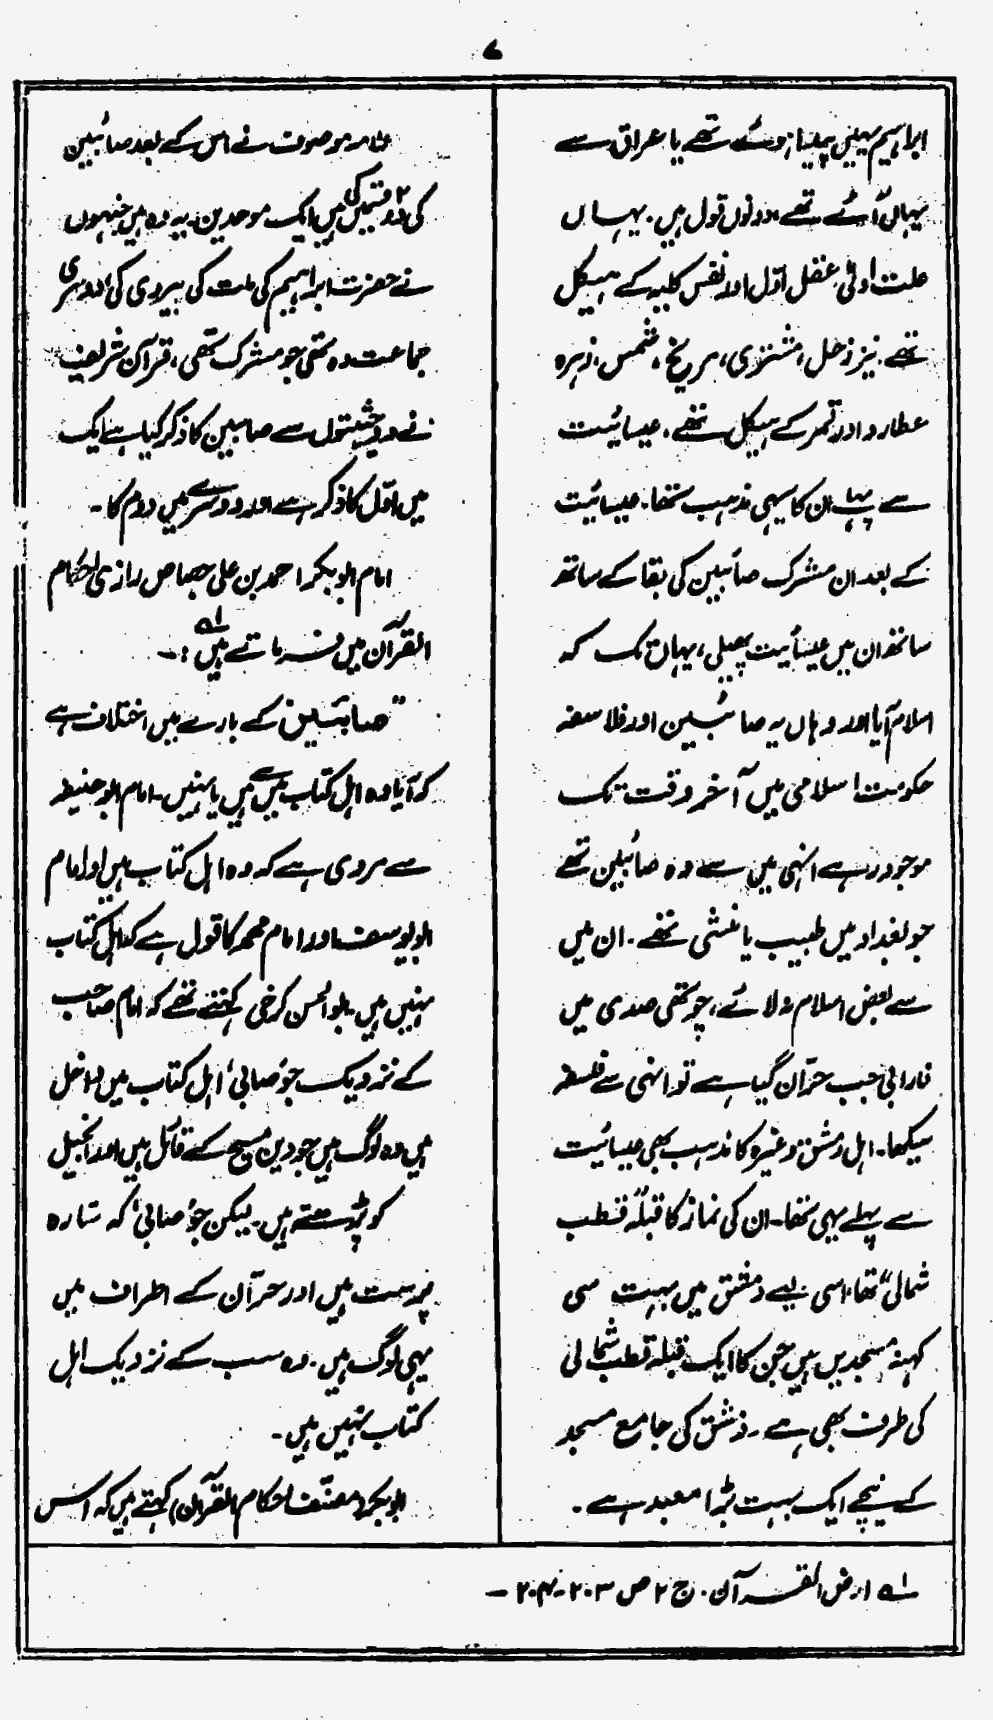 ۷
ابراہیم یہیں پیدا ہوئے تھے یا عراق سے
یہاں آئے تھے، دونوں قول ہیں۔ یہاں
علت اولیٰ عقل اول اور نفس کلیہ کے ہیکل
تھے نیز زحل، مشتری، مریخ، شمس، زہرہ
عطارد اور قمر کے ہیکل تھے۔ عیسائیت
سے پہلے ان کا یہی مذہب تھا۔ عیسائیت
کے بعد ان مشرک صائبین کی بقا کے ساتھ
ساتھ ان میں عیسائیت پھیلی، یہاں تک کہ
اسلام آیا اور وہاں یہ صائبین اور فلاسفہ
حکومت اسلامی میں آخر وقت تک
موجود رہے انہی میں سے وہ صائبین تھے
جو بغداد میں طبیب یا منشی تھے۔ ان میں
سے بعض اسلام نہ لائے، چوتھی صدی میں
فارابی جب حرّان گیا ہے تو انہی سے فلسفہ
سیکھا۔ اہل دمشق وغیرہ کا مذہب بھی عیسائیت
سے پہلے یہی تھا۔ ان کی نماز کا قبلہ "قطب
شمالی" تھا، اسی لیے دمشق میں بہت سی
کہنہ مسجدیں ہیں جن کا ایک قبلہ قطب شمالی
کی طرف بھی ہے۔ دمشق کی جامع مسجد
کے نیچے ایک بہت بڑا معبد ہے۔
علامہ موصوف نے اس کے بعد صائبین
کی دو قسمیں کی ہیں ایک موحدین۔ یہ وہ ہیں جنہوں
نے حضرت ابراہیم کی ملت کی پیروی کی، دوسری
جماعت وہ تھی جو مشرک تھی، قرآن شریف
نے دو حیثیتوں سے صائبین کا ذکر کیا ہے ایک
میں اوّل کا ذکر ہے اور دوسرے میں دوم کا۔
امام ابوبکر احمد بن علی جصاص رازی احکام
القرآن میں فرماتے ہیں لہ :۔
"صائبین کے بارے میں اختلاف ہے
کہ آیا وہ اہل کتاب میں سے ہیں یا نہیں۔ امام ابوحنیفہ
سے مروی ہے کہ وہ اہل کتاب ہیں اور امام
ابویوسف اور امام محمد کا قول ہے کہ اہل کتاب
نہیں ہیں۔ ابوالحسن کرخی کہتے تھے کہ امام صاحب
کے نزدیک جو صابی' اہل کتاب میں داخل
ہیں وہ لوگ ہیں جو دین مسیح کے قائل ہیں اور انجیل
کو پڑھتے ہیں۔ لیکن جو' صابی' کہ ستارہ
پرست ہیں اور حرّان کے اطراف میں
یہی لوگ ہیں۔ وہ سب کے نزدیک اہل
کتاب نہیں ہیں۔
ابوبکر (مصنف احکام القرآن) کہتے ہیں کہ اس
لہ ارض القرآن۔ ج ۲ ص ۲۰۳-۲۰۴ -